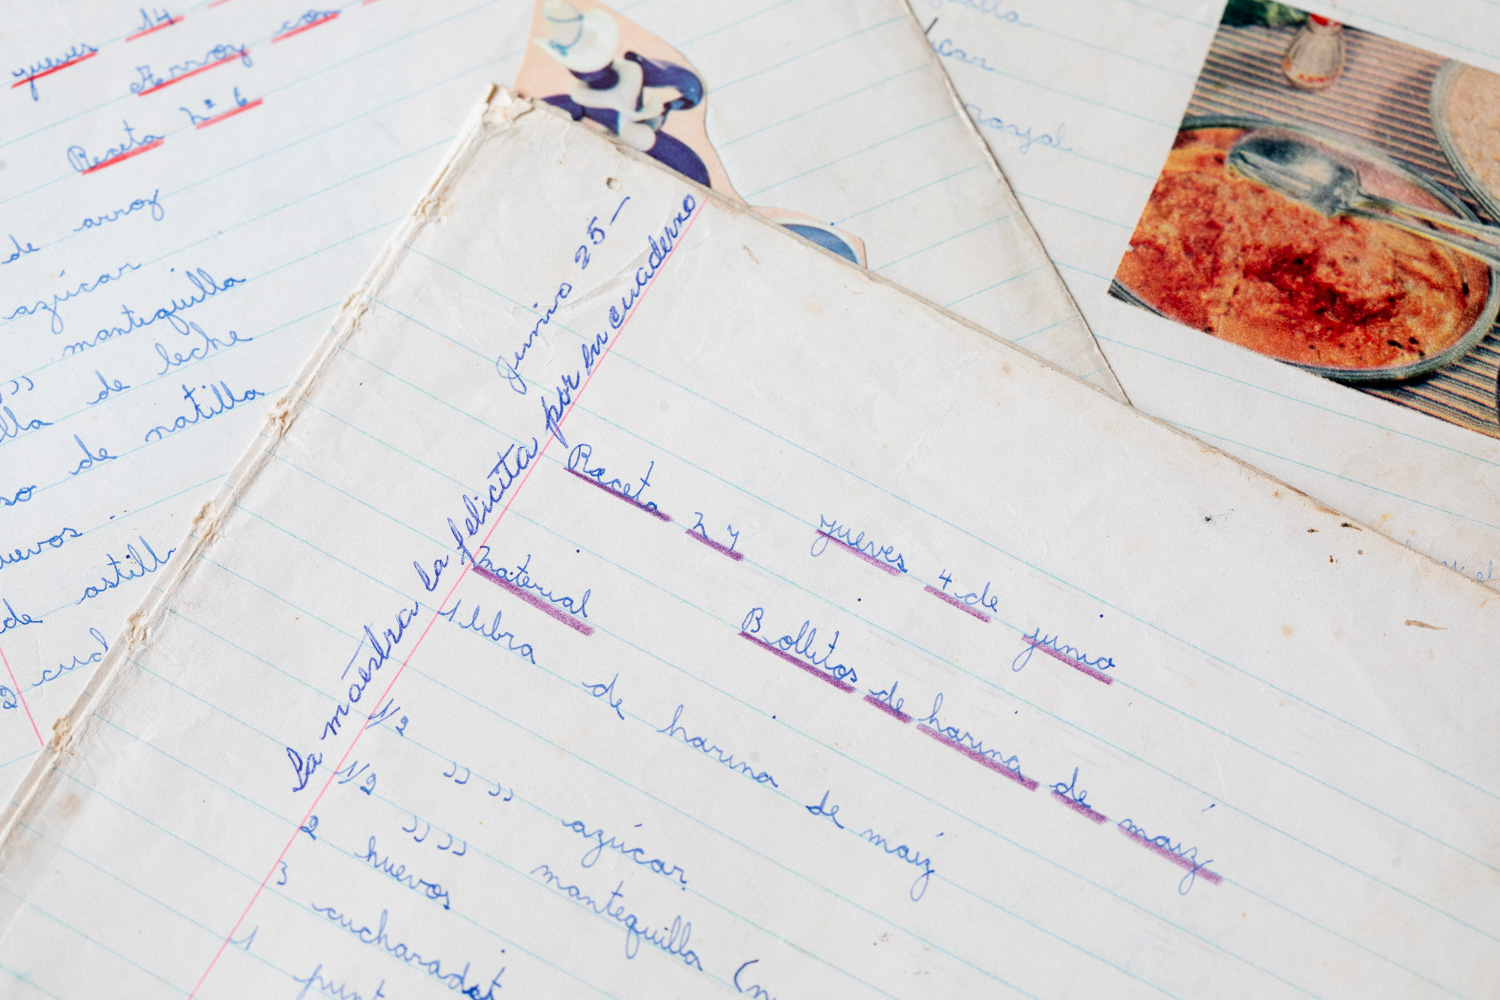 jueves 14
Arroz con
Receta nº 6
de arroz
azúcar
mantequilla
" de leche
so de natilla
huevos
de astill
2 cud
car
royal
junio 25-
La maestra la felicita por su cuaderno
Receta n y jueves 4 de junio
Material Bollitos de harina de maíz
1 libra de harina de maíz
1/2 " " azúcar
1/2 " " mantequilla (n
2 huevos
3 cucharadit
1 punt